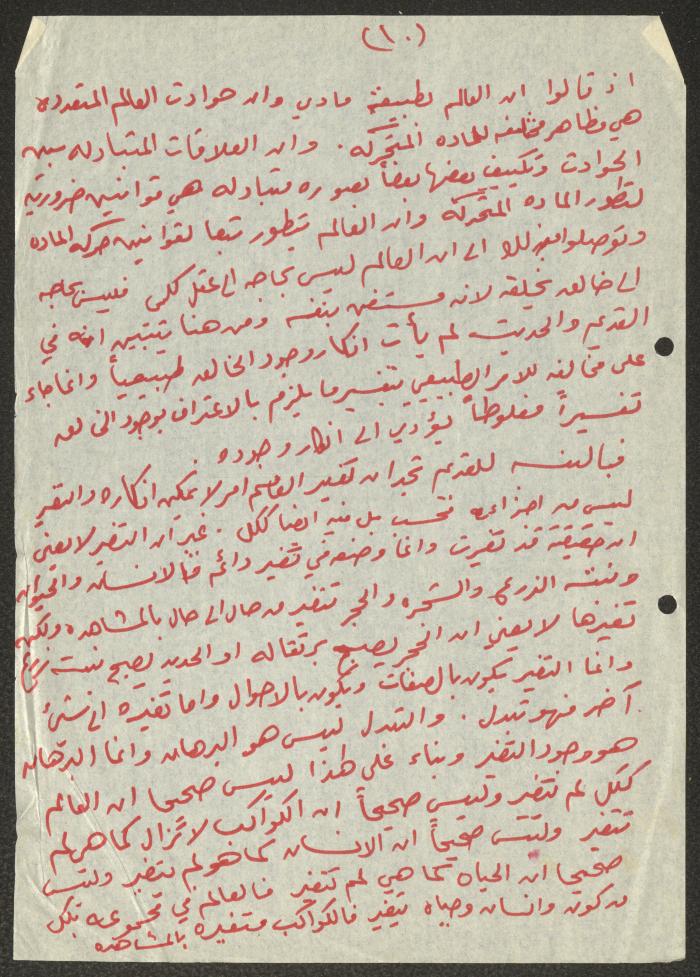 (١٠)
اذ قالوا ان العالم بطبيعته مادي وان حوادث العالم المتعدده
هي مظاهر مختلفه للماده المتحركه. وان العلاقات المتبادله بين
الحوادث وتكييف بعضها بعضاً بصوره متبادله هي قوانين ضروريه
لتطور الماده المتحركه وان العالم يتطور تبعا لقوانين حركه الماده
وتوصلوا من ذلك الى ان العالم ليس بحاجه الى عقل كلي فليس بحاجه
الى خالق يخلقه لانه مستغن بنفسه ومن هنا يتبين انه في
القديم والحديث لم يأت انكار وجود الخالق طبيعياً وانما جاء
على مخالفه للامر الطبيعي بتفسير ما يلزم بالاعتراف بوجود الخالق
تفسيراً مغلوطاً يؤدي الى انكار وجوده
فبالنسبه للقديم نجد ان تغير العالم امر لا يمكن انكاره والتغير
ليس من اجزاءه فحسب بل فيه ايضا ككل. غير ان التغير لا يعني
ان حقيقته قد تغيرت وانما وضعه في تغير دائم فالانسان والحيوان
ونبتة الزرع والشجره والحجر تتغير من حال الى حال بالمشاهده ولكن
تغيرها لا يعني ان الحجر يصبح برتقاله او الحديد يصبح نبتة زرع
وانما التغير يكون بالصفات ويكون بالاحوال واما تغيره الى شئ
آخر فهو تبدل. والتبدل ليس هو البرهان وانما البرهان
هو وجود التغير وبناء على هذا ليس صحيحا ان العالم
ككل لم يتغير وليس صحيحاً ان الكواكب لا تزال كما هي لم
تتغير وليس صحيحاً ان الانسان كما هو لم يتغير وليس
صحيحا ان الحياه كما هي لم تتغير فالعالم في مجموعه ككل
من كون وانسان وحياه يتغير فالكواكب متغيره بالمشاهده